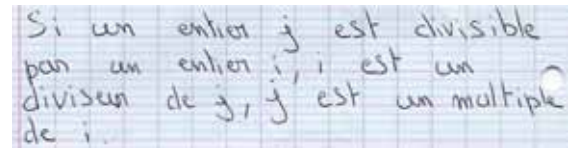 Si un entier j est divisible
par un entier i, i est un
diviseur de j, j est un multiple
de i.